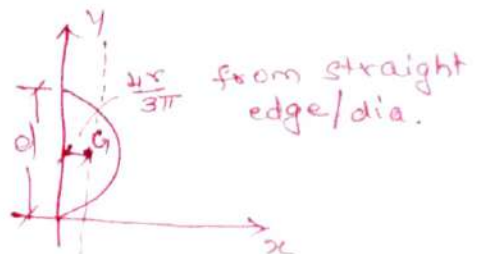 y
4r/3π from straight
edge/dia.
d
G
x